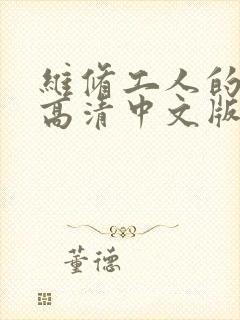 维修工人的
高清中文版
董德